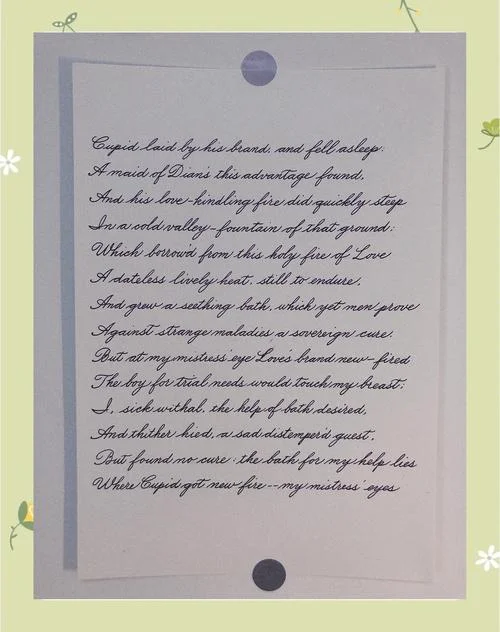 Cupid laid by his brand, and fell asleep:
A maid of Dian's this advantage found,
And his love-kindling fire did quickly steep
In a cold valley-fountain of that ground;
Which borrow'd from this holy fire of Love
A dateless lively heat, still to endure,
And grew a seething bath, which yet men prove
Against strange maladies a sovereign cure.
But at my mistress' eye Love's brand new-fired
The boy for trial needs would touch my breast;
I, sick withal, the help of bath desired,
And thither hied, a sad distemper'd guest,
But found no cure: the bath for my help lies
Where Cupid got new fire--my mistress' eyes